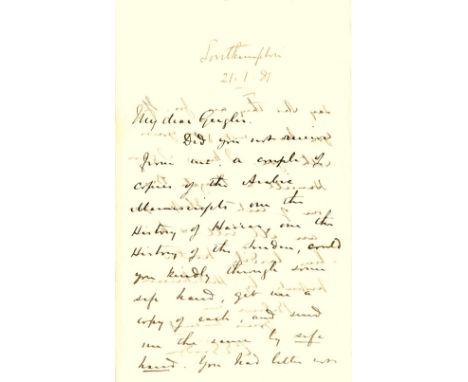 Southampton
21.1.81
My dear Giegler.
Did you not receive
from me. a couple of
copies of the Arabic
Manuscripts one the
History of Harrar, one the
History of the Sudan, could
you kindly through some
safe hand, get me a
copy of each, and send
me the same by safe
hand. You had better not